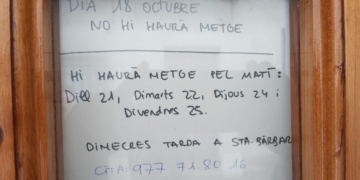 DIA 18 OCTUBRE
NO HI HAURÀ METGE
HI HAURÀ METGE PEL MATÍ:
Dill 21, Dimarts 22, Dijous 24 i
Divendres 25.
DIMECRES TARDA A STA. BÀRBAR
CITA: 977 71 80 16